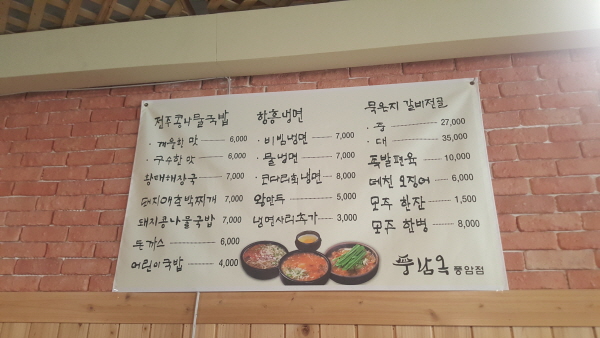 전주콩나물국밥
· 개운한 맛 6,000
· 구수한 맛 6,000
왕뼈해장국 7,000
돼지애호박찌개 7,000
돼지콩나물국밥 7,000
돈까스 6,000
어린이국밥 4,000
함흥냉면
· 비빔냉면 7,000
· 물냉면 7,000
· 코다리회냉면 8,000
왕만두 5,000
냉면사리추가 3,000
묵은지 갈비전골
· 중 27,000
· 대 35,000
족발편육 10,000
데친 오징어 6,000
모주 한잔 1,500
모주 한병 8,000
풍남옥 풍암점